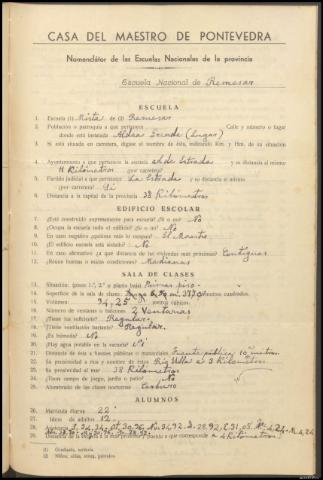 CASA DEL MAESTRO DE PONTEVEDRA
Nomenclátor de las Escuelas Nacionales de la provincia
Escuela Nacional de Remesar
ESCUELA
1. Escuela (1) Mixta de (2) Remesar
2. Población o parroquia a que pertenece Calle y número o lugar
donde está instalada (Lugar)
3. Si está situada en carretera, dígase el nombre de ésta, indicando Km. y Hm. de su situación
4. Ayuntamiento a que pertenece la escuela de Estrada y su distancia al mismo
11 Kilómetros (por carretera)
5. Partido judicial a que pertenece La Estrada y su distancia al mismo
(por carretera) Si
6. Distancia a la capital de la provincia 38 Kilómetros
EDIFICIO ESCOLAR
7. ¿Está construido expresamente para escuela? ¿Sí o no? No
8. ¿Ocupa la escuela todo el edificio? ¿Sí o no? No
9. En caso negativo ¿quiénes más lo ocupan? El Maestro
10. ¿El edificio escuela está aislado? No
11. En caso afirmativo ¿a qué distancia de las viviendas más próximas? Contiguas
12. ¿Reúne buenas o malas condiciones? Medianas
SALA DE CLASES
13. Situación: (pisos 1.º, 2.º o planta baja) Primer piso
14. Superficie de la sala de clases: metros cuadrados.
15. Volumen: 94,25 metros cúbicos.
16. Número de ventanas o balcones 2 Ventanas
17. ¿Tiene luz suficiente? Regular
18. ¿Tiene ventilación bastante? Regular.
19. ¿Es húmeda? No
20. ¿Hay agua potable en la escuela? No
21. Distancia de ésta a fuentes públicas o manantiales Fuente pública 10 metros
22. Su proximidad a ríos y nombre de éstos Río Ulla a 3 Kilómetros
23. Su proximidad al mar 38 Kilómetros
24. ¿Tiene campo de juego, jardín o patio? No
25. Alumbrado de las clases nocturnas Carburo
ALUMNOS
26. Matrícula diurna 22
27. Idem de adultos 12
28. Asistencia
29. a que corresponde a 4 Kilómetros
(1) Graduada, unitaria.
(2) Niños, niñas, mixta, párvulos.